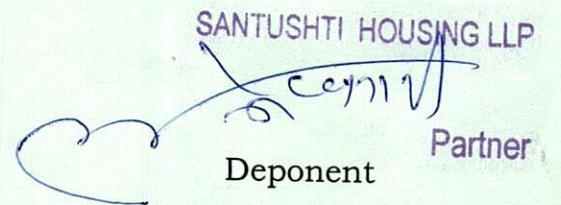 SANTUSHTI HOUSING LLP
Partner
Deponent